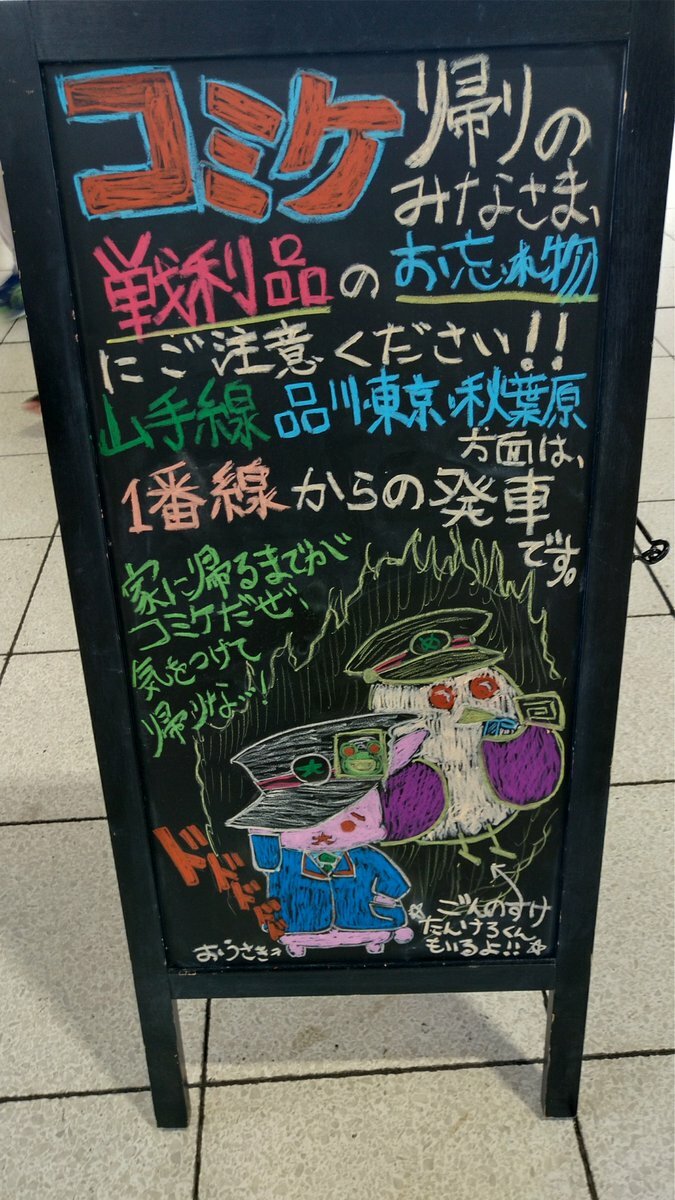 コミケ帰りの
みなさま、
戦利品のお忘れ物
にご注意ください!!
山手線 品川・東京・秋葉原
方面は、
1番線からの発車
です。
家に帰るまでが
コミケだぜ、
気をつけて
帰りなぁ!
ドドドド
おうさき→
ごんのすけ
たんけろくん
もいるよ!!☆